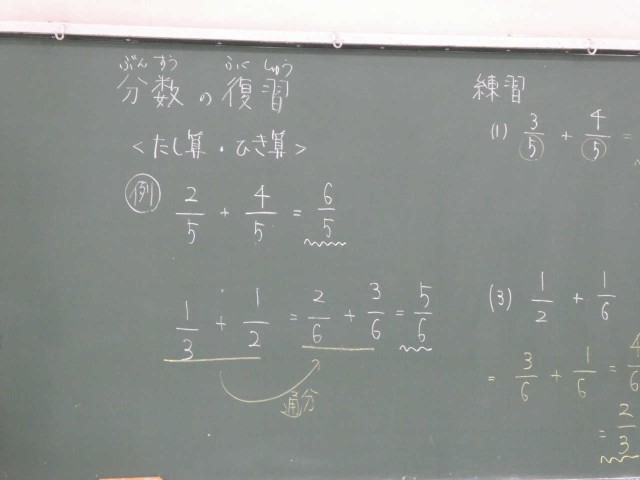 ぶんすう ふくしゅう
分数の復習
<たし算・ひき算>
例 2/5 + 4/5 = 6/5
1/3 + 1/2 = 2/6 + 3/6 = 5/6
通分
練習
(1) 3/5 + 4/5 =
(3) 1/2 + 1/6
= 3/6 + 1/6 = 4/6
= 2/3